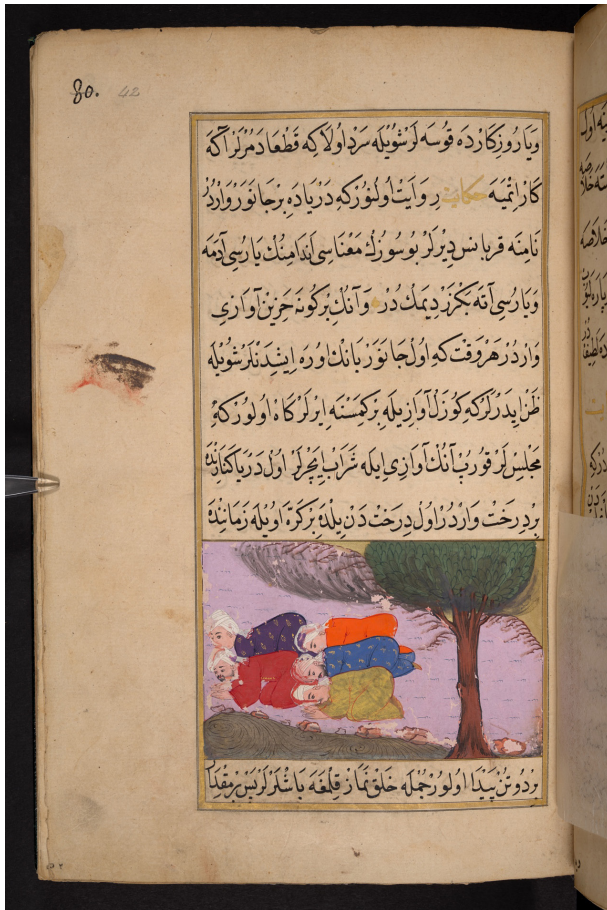 80. 42
ویاروزکارده قوسه لر شویله سرد اولا که قطعا دمرلر آکه
کار اتمیه حکایت روایت اولنورکه دریاده بر جانور واردر
نامنه قربانس دیرلر بو سوزك معناسی اندامنك یاروسی آدمه
ویاروسی آته بکزر دیمك در وآنك بر کونه حزین آوازی
واردر هر وقت که اول جانور بانك اوره ایشدنلر شویله
ظن ایدرلر که کوزل آواز یله بر کمسنه ایرلر کاه اولورکه
مجلس لر قوروب آنك آوازی ایله شراب ایچرلر اول دریا کنارنده
بر درخت واردر اول درخت دن یلده بر کره اویله زماننده
بر دوتن پیدا اولور جمله خلق نماز قلمغه باشلرلر پس بر مقدار